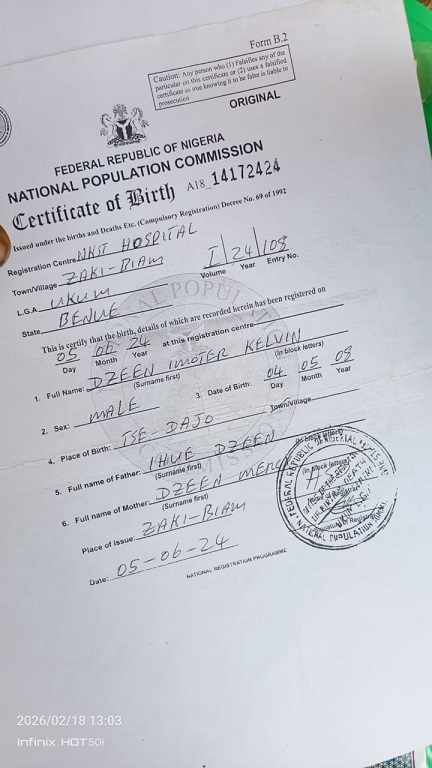 Form B.2
Caution: Any person who (1) Falsifies any of the
particular on this certificate or (2) uses a falsified
certificate as true knowing it to be false is liable to
prosecution
ORIGINAL
FEDERAL REPUBLIC OF NIGERIA
NATIONAL POPULATION COMMISSION
Certificate of Birth A18_14172424
Issued under the births and Deaths Etc. (Compulsory Registration) Decree No. 69 of 1992
Registration Centre NKST HOSPITAL
Town/Village ZAKI-BIAM I / 24 / 108
L.G.A. UKUM Volume Year Entry No.
State BENUE
This is certify that the birth, details of which are recorded herein has been registered on
05 06 24 at this registration centre
Day Month Year
1. Full Name: DZEEN IMOTER KELVIN
(Surname first) (In block letters)
2. Sex: MALE 3. Date of Birth: 04 05 09
Day Month Year
4. Place of Birth: TSE-DAJO Town/Village
5. Full name of Father: IHUE DZEEN
(Surname first) (In block letters)
6. Full name of Mother: DZEEN
(Surname first) (In block letters)
Place of Issue: ZAKI-BIAM
Date: 05-06-24
NATIONAL REGISTRATION PROGRAMME
2026/02/18 13:03
Infinix HOT 50i